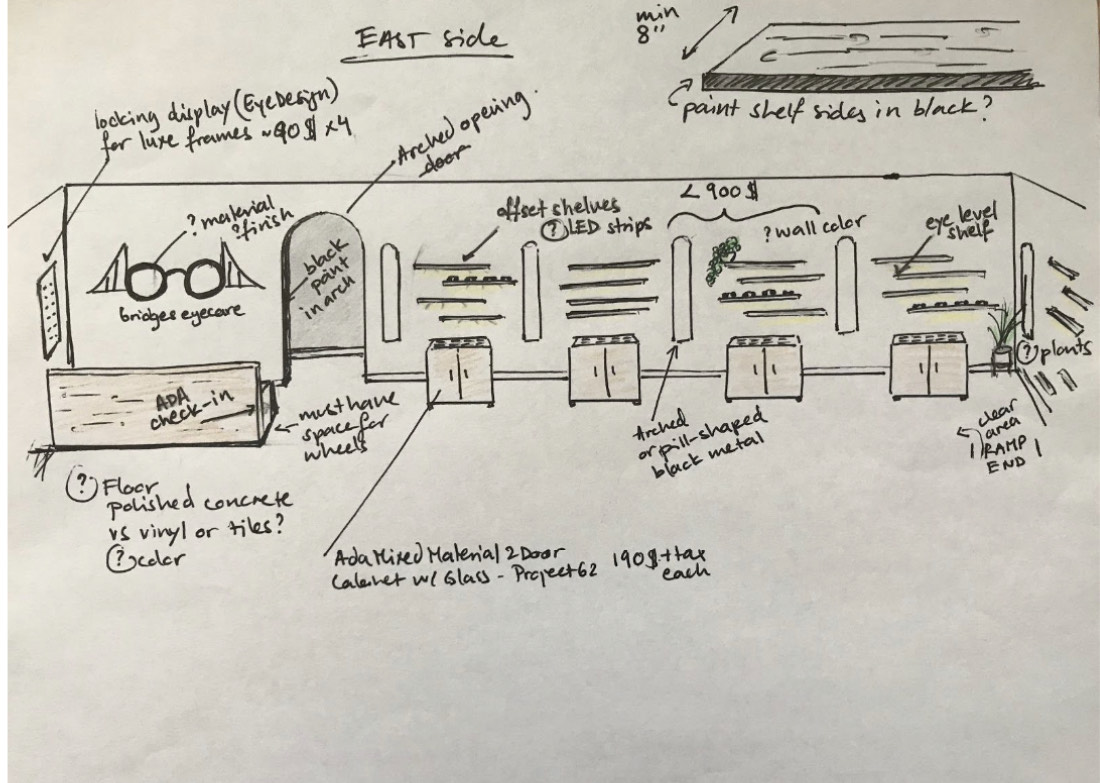 EAST side
min
8"
paint shelf sides in black?
locking display (EyeDesign)
for luxe frames ~90$ x4
Arched opening.
door
? material
? finish
bridges eyecare
black
paint
in arch
offset shelves
? LED strips
< 900$
? wall color
eye level
shelf
ADA
check-in
must have
space for
wheels
Arched
or pill-shaped
black metal
? plants
clear
area
RAMP
END
? Floor
polished concrete
vs vinyl or tiles?
? color
Ada Mixed Material 2 Door
Cabinet w/ Glass - Project 62 190$ + tax
each